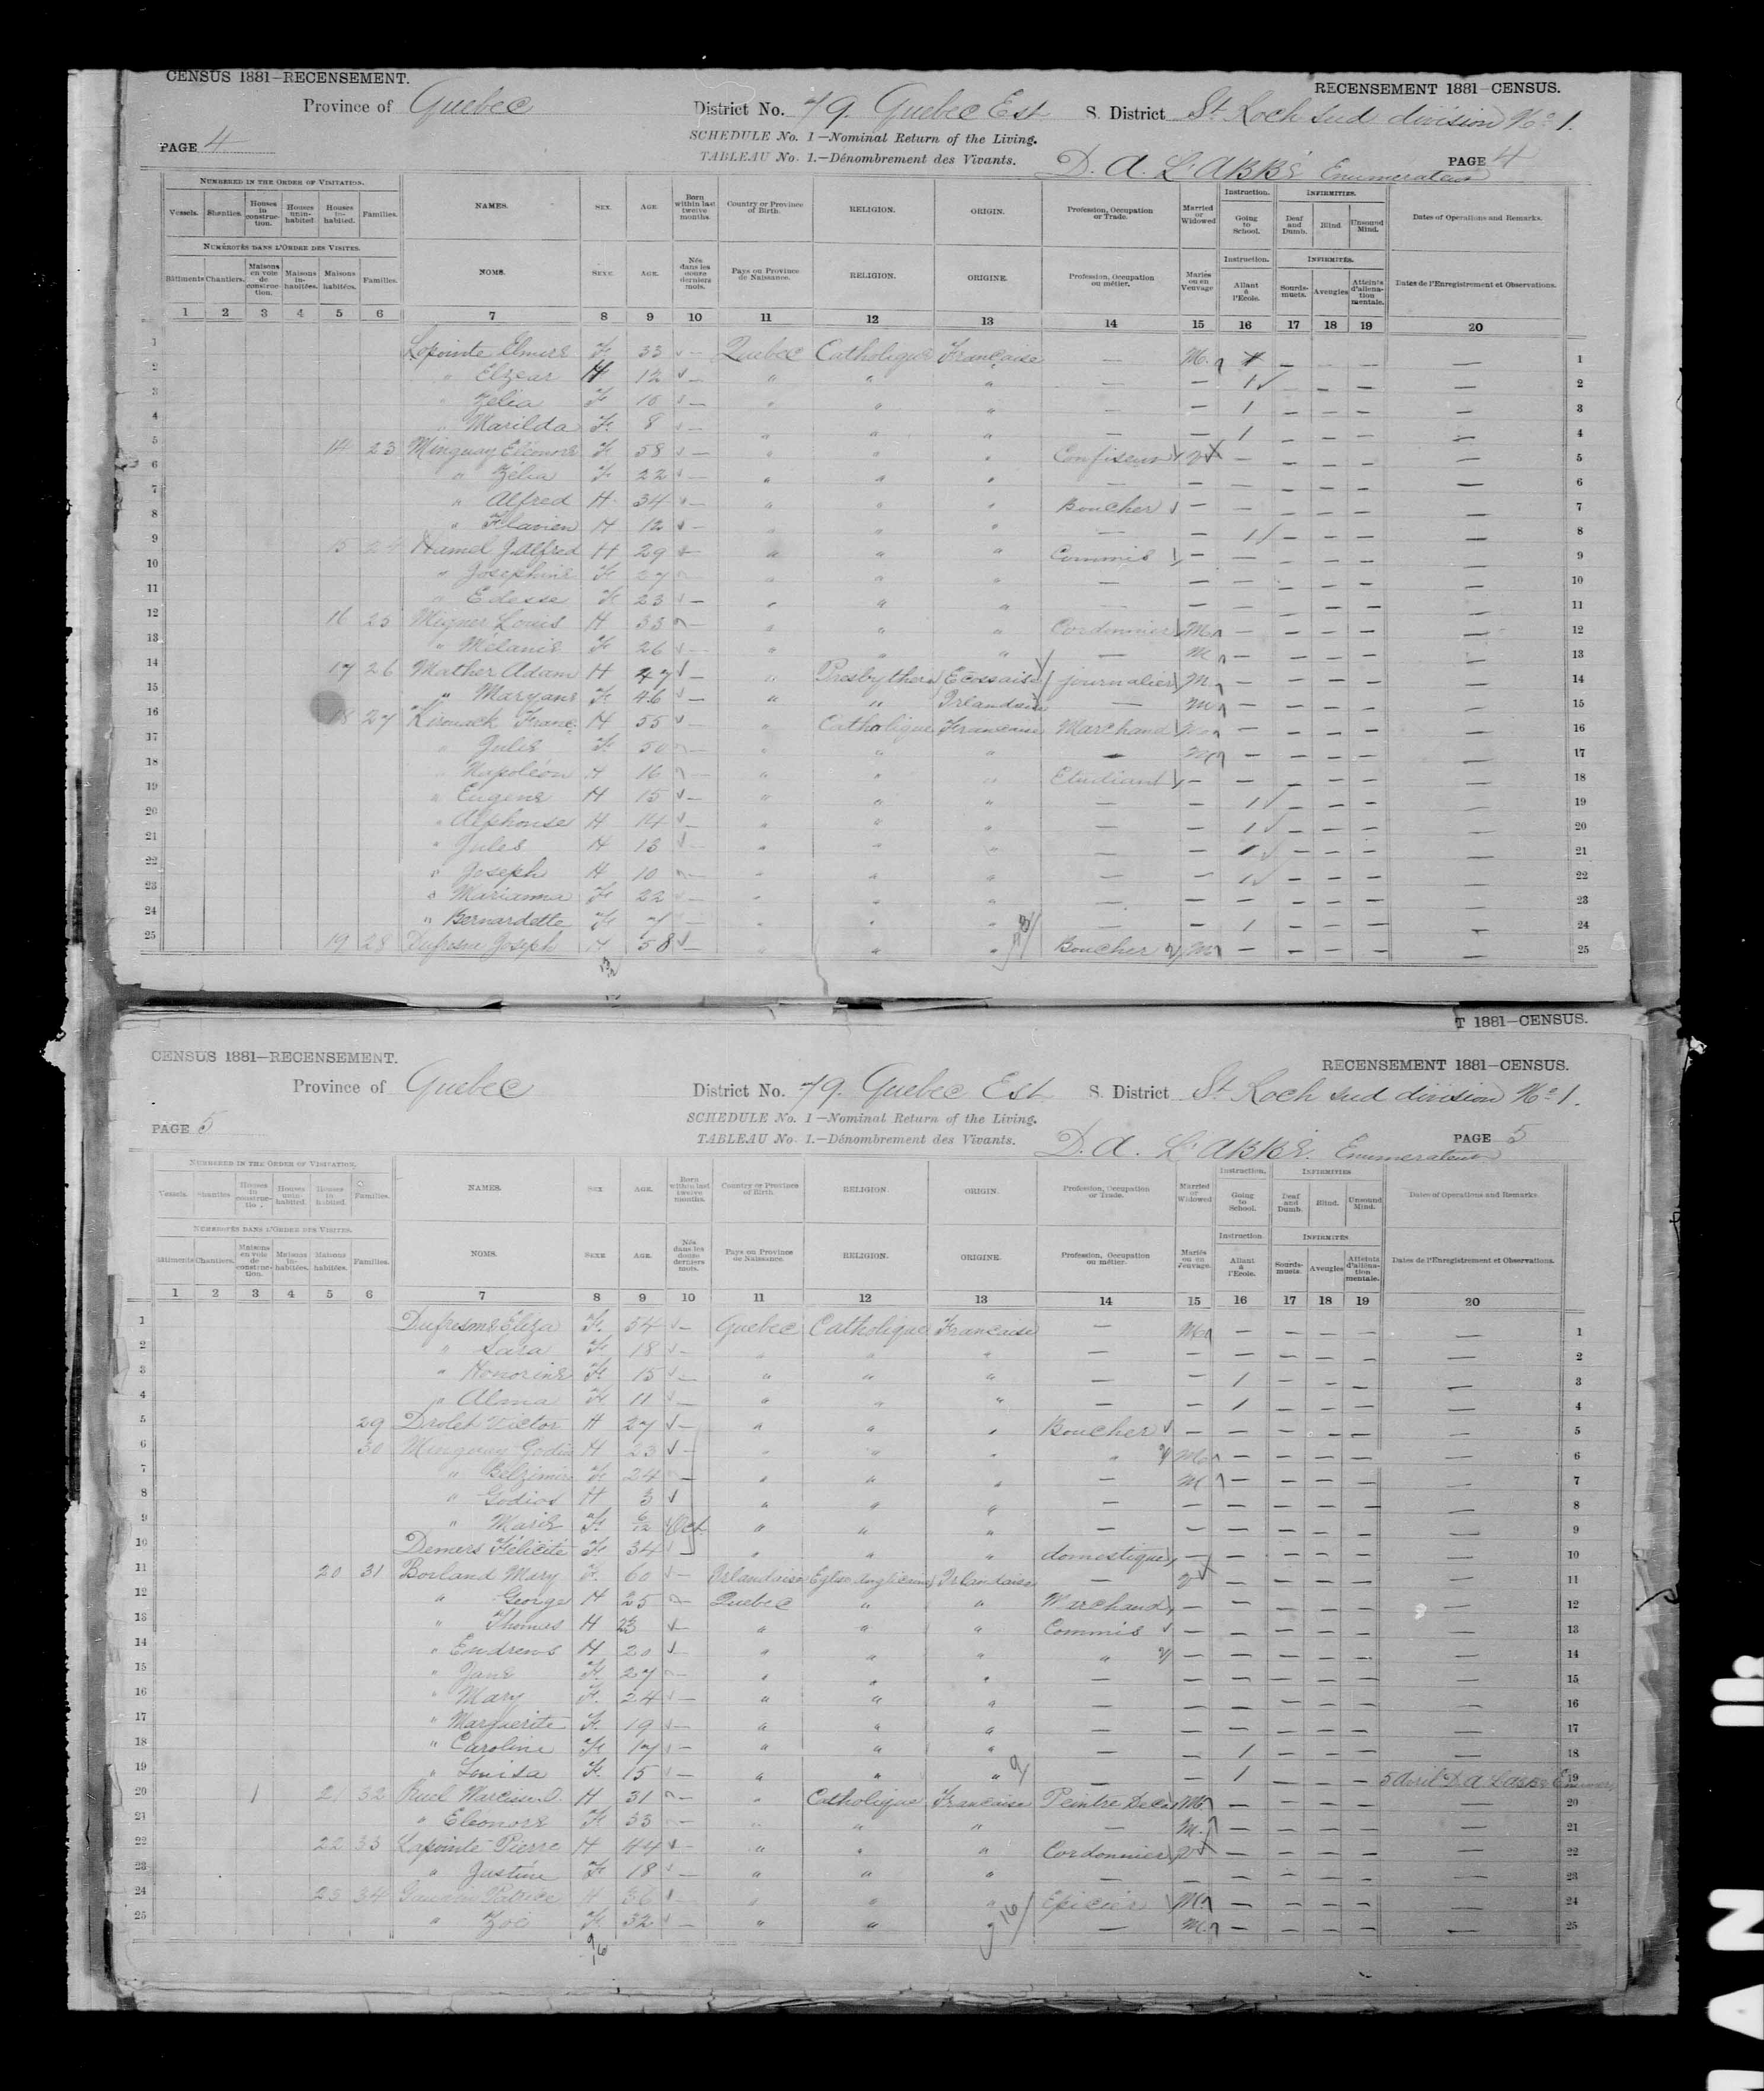 CENSUS 1881—RECENSEMENT. RECENSEMENT 1881—CENSUS.
Province of Quebec District No. 79. Quebec Est S. District St Roch sud division No 1.
SCHEDULE No. 1—Nominal Return of the Living.
PAGE 4 TABLEAU No. 1.—Dénombrement des Vivants. D. A. LABBÉ Enumerateur PAGE 4
NUMBERED IN THE ORDER OF VISITATION. NAMES. SEX. AGE. Born within last twelve months. Country or Province of Birth. RELIGION. ORIGIN. Profession, Occupation or Trade. Married or Widowed Instruction. INFIRMITIES. Dates of Operations and Remarks.
Vessels. Shanties. Houses in construction. Houses uninhabited Houses inhabited. Families. Going to School. Deaf and Dumb. Blind Unsound Mind.
NUMÉROTÉS DANS L'ORDRE DES VISITES. NOMS. SEXE. AGE. Nés dans les douze derniers mois. Pays ou Province de Naissance. RELIGION. ORIGINE. Profession, Occupation ou métier. Mariés ou en Veuvage Instruction. INFIRMITÉS. Dates de l'Enregistrement et Observations.
Bâtiments Chantiers. Maisons en voie de construction. Maisons inhabitées. Maisons habitées. Families. Allant à l'Ecole. Sourds-muets. Aveugles Atteints d'aliénation mentale.
1 2 3 4 5 6 7 8 9 10 11 12 13 14 15 16 17 18 19 20
1 Lapointe Elmire F 33 — Quebec Catholique Française — M. — — — — 1
2 " Elzear H 12 — " " " — — 1 — — — — 2
3 " Zélia F 10 — " " " — — 1 — — — — 3
4 " Marilda F 8 — " " " — — 1 — — — — 4
5 14 23 Minguay Eléonore F 58 — " " " Confiseur V — — — — — 5
6 " Zélia F 22 — " " " — — — — — — — 6
7 " Alfred H 34 — " " " Boucher — — — — — — 7
8 " Flavien H 12 — " " " — — 1 — — — — 8
9 15 24 Hamel J. Alfred H 29 — " " " Commis — — — — — — 9
10 " Josephine F 27 — " " " — — — — — — — 10
11 " Edesse F 23 — " " " — — — — — — — 11
12 16 25 Migner Louis H 33 — " " " Cordonnier M — — — — — 12
13 " Mélanie F 26 — " " " — M — — — — — 13
14 17 26 Mather Adam H 47 — " Presbythere Ecossaise journalier M. — — — — — 14
15 " Maryane F 46 — " " Irlandaise — M — — — — — 15
16 18 27 Franc. H 55 — " Catholique Française Marchand M — — — — — 16
17 " Julie F 50 — " " " — M — — — — — 17
18 " Napoléon H 16 — " " " Etudiant — — — — — — 18
19 " Eugene H 15 — " " " — — 1 — — — — 19
20 " Alphonse H 14 — " " " — — 1 — — — — 20
21 " Jules H 13 — " " " — — 1 — — — — 21
22 " Joseph H 10 — " " " — — 1 — — — — 22
23 " Marianna F 22 — " " " — — — — — — — 23
24 " Bernardette F 7 — " " " — — 1 — — — — 24
25 19 28 Dufresne Joseph H 58 — " " " Boucher M — — — — — 25
T 1881—CENSUS.
CENSUS 1881—RECENSEMENT. RECENSEMENT 1881—CENSUS.
Province of Quebec District No. 79. Quebec Est S. District St Roch sud division No 1.
SCHEDULE No. 1—Nominal Return of the Living.
PAGE 5 TABLEAU No. 1.—Dénombrement des Vivants. D. A. LABBÉ. Enumerateur PAGE 5
NUMBERED IN THE ORDER OF VISITATION. NAMES. SEX AGE. Born within last twelve months. Country or Province of Birth RELIGION. ORIGIN. Profession, Occupation or Trade. Married or Widowed Instruction. INFIRMITIES Dates of Operations and Remarks.
Vessels. Shanties Houses in construction. Houses uninhabited Houses inhabited. Families. Going to School. Deaf and Dumb. Blind. Unsound Mind.
NUMÉROTÉS DANS L'ORDRE DES VISITES. NOMS. SEXE AGE. Nés dans les douze derniers mois. Pays ou Province de Naissance. RELIGION. ORIGINE. Profession, Occupation ou métier. Mariés ou en Veuvage. Instruction. INFIRMITÉS Dates de l'Enregistrement et Observations.
Bâtiments Chantiers. Maisons en voie de construction. Maisons inhabitées. Maisons habitées. Familles. Allant à l'Ecole. Sourds-muets. Aveugles Atteints d'aliénation mentale.
1 2 3 4 5 6 7 8 9 10 11 12 13 14 15 16 17 18 19 20
1 Dufresne Eliza F. 54 — Quebec Catholique Française — M — — — — — 1
2 " Sara F 18 — " " " — — — — — — — 2
3 " Honorine F. 15 — " " " — — 1 — — — — 3
4 " Alma F. 11 — " " " — — 1 — — — — 4
5 29 Drolet Victor H 27 — " " " Boucher — — — — — — 5
6 30 Minguay Godin H 23 — " " " " M — — — — — 6
7 " Belzimire F 24 — " " " — M — — — — — 7
8 " Godios H 3 " " " — — — — — — — 8
9 " Marie F. 6/12 Oct. " " " — — — — — — — 9
10 Demers Félicité F 34 — " " " domestique — — — — — — 10
11 20 31 Borland Mary F. 60 — Irlandaise Eglise Anglicane Irlandaise — V — — — — — 11
12 " George H 25 — Quebec " " Marchand — — — — — — 12
13 " Thomas H 23 — " " " Commis — — — — — — 13
14 " Endrews H 20 — " " " " — — — — — — 14
15 " Jane F. 27 — " " " — — — — — — — 15
16 " Mary F. 24 — " " " — — — — — — — 16
17 " Marguerite F. 19 — " " " — — — — — — — 17
18 " Caroline F 17 — " " " — — 1 — — — — 18
19 " Louisa F. 15 — " " " — — 1 — — — 5 Avril D. A. Labbé 19
20 1 21 32 Ruel Narcisse O. H 31 — " Catholique Française Peintre Deca M — — — — — 20
21 " Eleonore F 33 — " " " — M. — — — — — 21
22 22 33 Lapointe Pierre H 44 — " " " Cordonnier V — — — — — 22
23 " Justine F 18 — " " " — — — — — — — 23
24 23 34 Patrice H 36 — " " " Epicier M — — — — — 24
25 " Zoé F. 32 — " " " — M. — — — — — 25